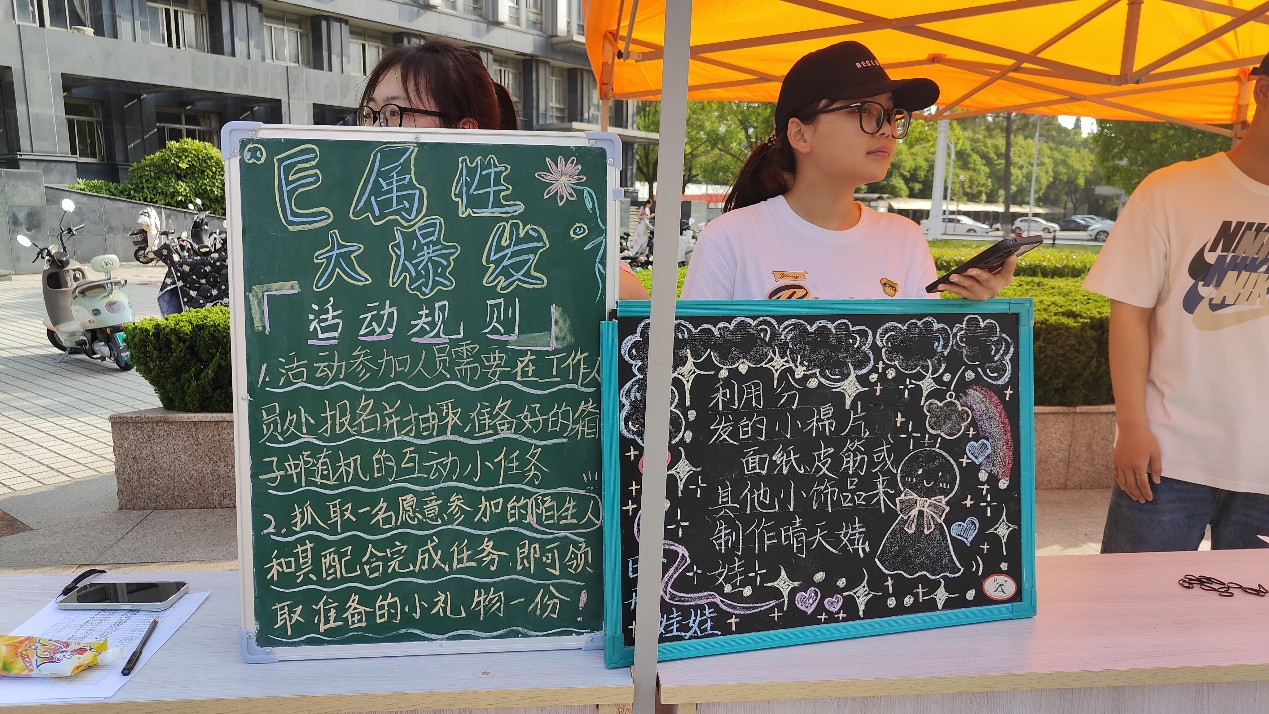 E属性
大爆发
「活动规则」
1.活动参加人员需要在工作人
员处报名并抽取准备好的箱
子中随机的互动小任务
2.抓取一名愿意参加的陌生人
和其配合完成任务.即可领
取准备的小礼物一份!
利用分
发的小棉片
面纸皮筋或
其他小饰品来
制作晴天娃
娃
娃娃
NIKE